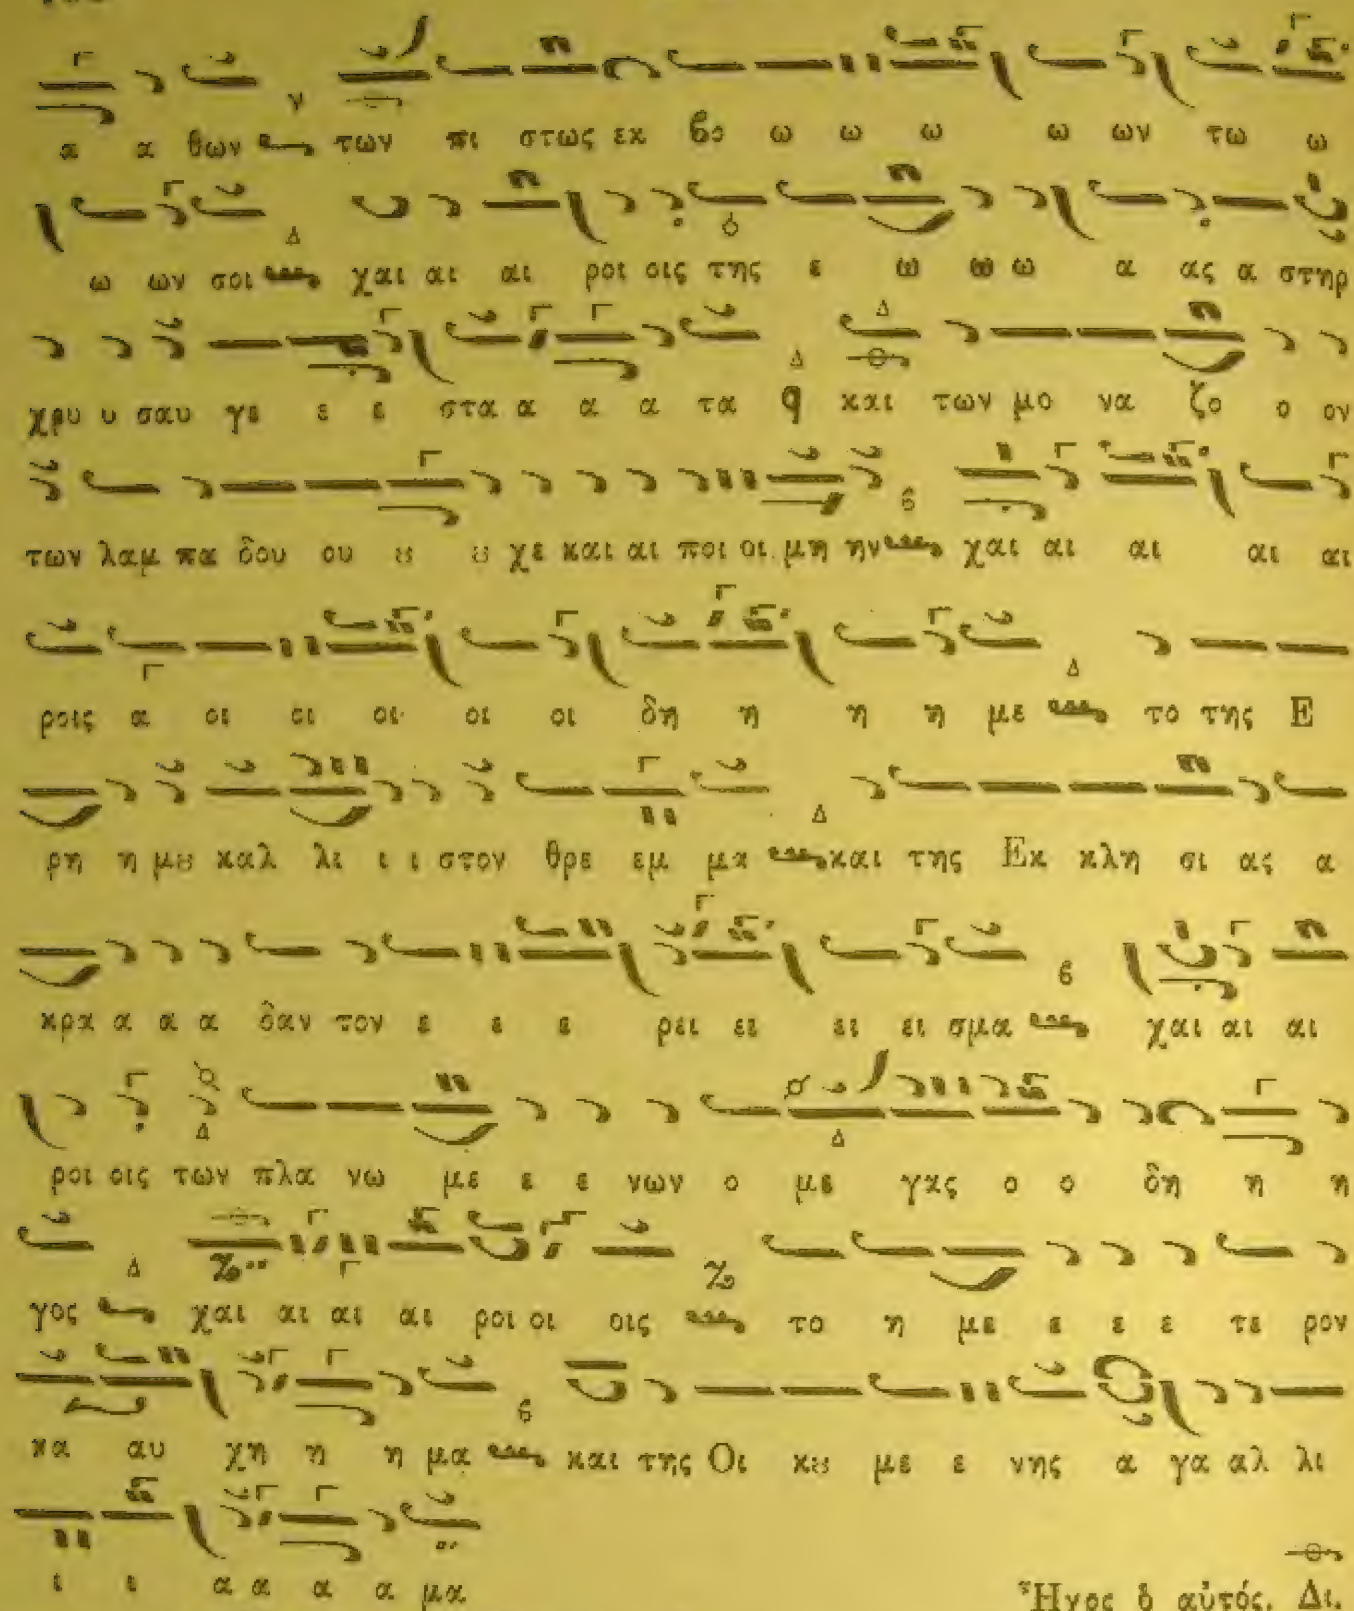 α α θων των πι στως εκ βο ω ω ω ω ων τω ω
ω ων σοι χαι αι αι ροι οις της ε ω ω ω α ας α στηρ
χρυ υ σαυ γε ε ε στα α α α τα q και των μο να ζο ο ον
των λαμ πα δου ου ȣ ȣ χε και αι ποι οι μη ην χαι αι αι αι αι
ροις α οι οι οι οι οι δη η η η με το της Ε
ρη η μȣ καλ λι ι ι στον θρε εμ μα και της Εκ κλη σι ας α
κρα α α α δαν τον ε ε ε ρει ει ει ει σμα χαι αι αι
ροι οις των πλα νω με ε ε νων ο με γας ο ο δη η η
γος χαι αι αι αι ροι οι οις το η με ε ε ε τε ρον
κα αυ χη η η μα και της Οι κȣ με ε νης α γα αλ λι
ι ι α α α α μα
Ἦχος ὁ αὐτός. Δι.